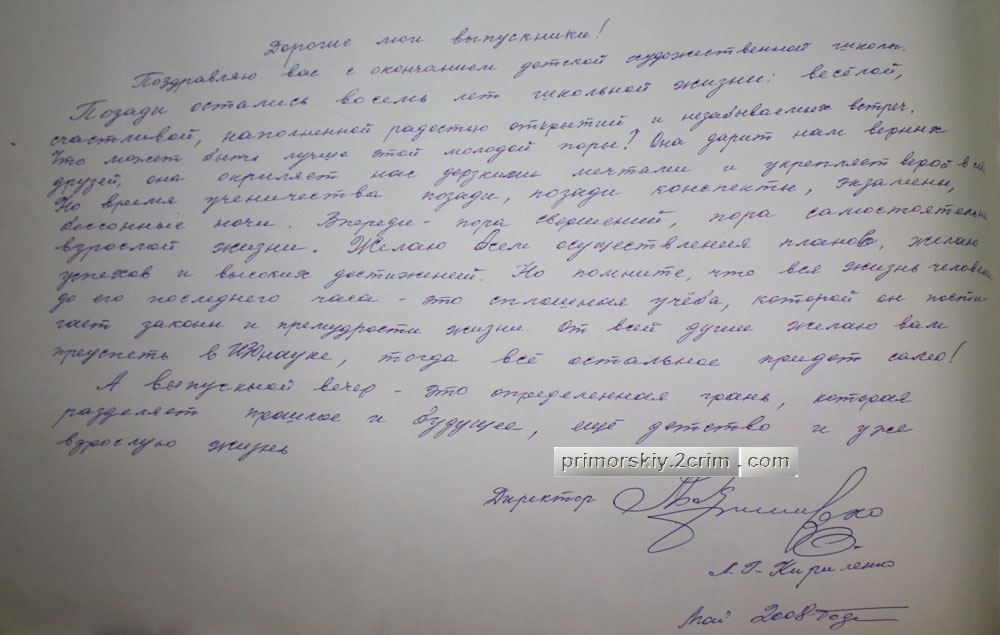 Дорогие мои выпускники!
Поздравляю вас с окончанием детской художественной школы.
Позади остались восемь лет школьной жизни: весёлой,
счастливой, наполненной радостью открытий и незабываемых встреч.
Что может быть лучше этой молодой поры! Она дарит нам верных
друзей, она окрыляет нас дерзкими мечтами и укрепляет
Но время ученичества позади, позади конспекты, экзамены,
бессонные ночи. Впереди - пора свершений, пора самостоятельн
взрослой жизни. Желаю Всем осуществления планов, желаю
успехов и высоких достижений. Но помните, что вся жизнь человека
до его последнего часа - это сплошная учёба, которой он пости-
гает законы и премудрости жизни. От всей души желаю вам
преуспеть в науке, тогда всё остальное придет само!
А выпускной вечер - это определенная грань, которая
разделяет прошлое и будущее, ещё детство и уже
взрослую жизнь
primorskiy.2crim.com
Директор
Л.Г. Кириленко
Май 2008 года